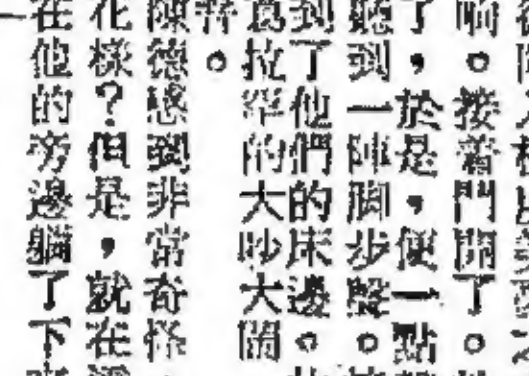 响。接着門開了。
了，於是，便一點
聽到一陣脚步聲。
到了他們的床邊。
葛拉罕的大吵大鬧
陳德感到非常奇怪
化樣？但是，就在
在他的旁邊躺了下